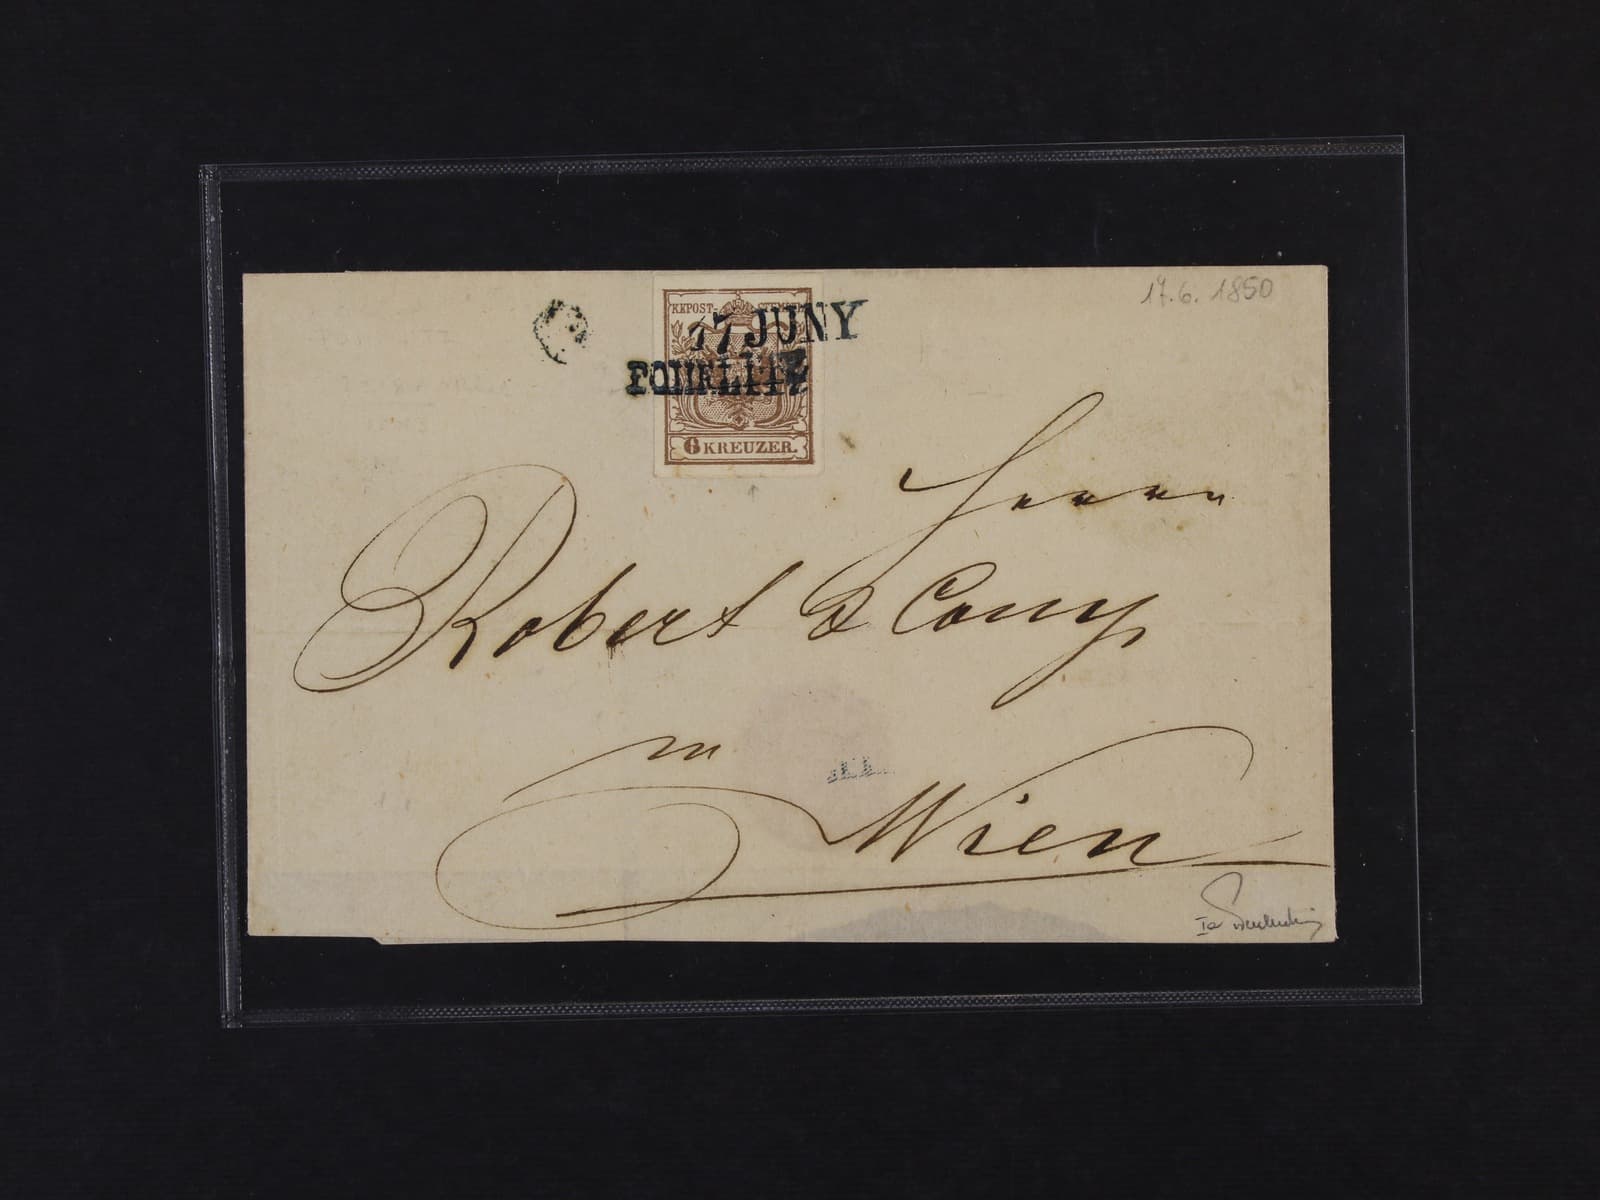 17.6.1850
KKPOST-STEMPEL
17 JUNY
POHRLITZ
6 KREUZER.
Herrn
Robert & Comp
in
Wien